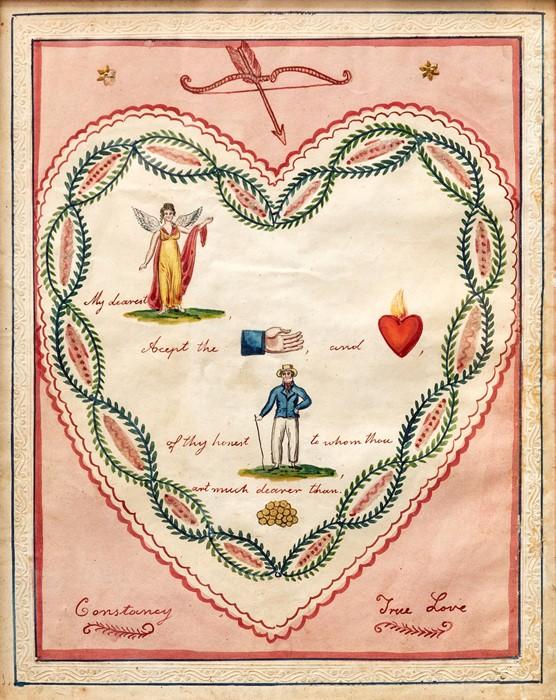 My dearest ,
Acept the , and ,
of thy honest to whom thou
art much dearer than.
Constancy
True Love